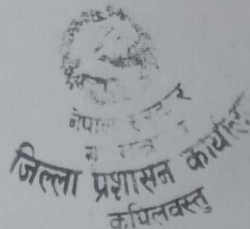 नेपाल सरकार
जिल्ला प्रशासन कार्यालय
कपिलवस्तु